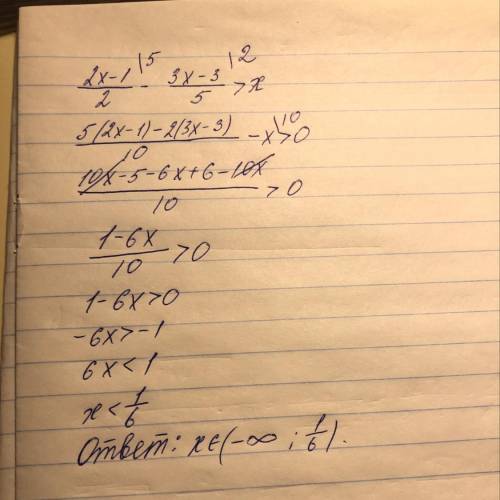 (2x-1)/2 \5 - (3x-3)/5 \2 > x
(5(2x-1)-2(3x-3))/10 - x \10 > 0
(10x-5-6x+6-10x)/10 > 0
(1-6x)/10 > 0
1-6x>0
-6x>-1
6x<1
x<1/6
Ответ: x∈(-∞; 1/6).